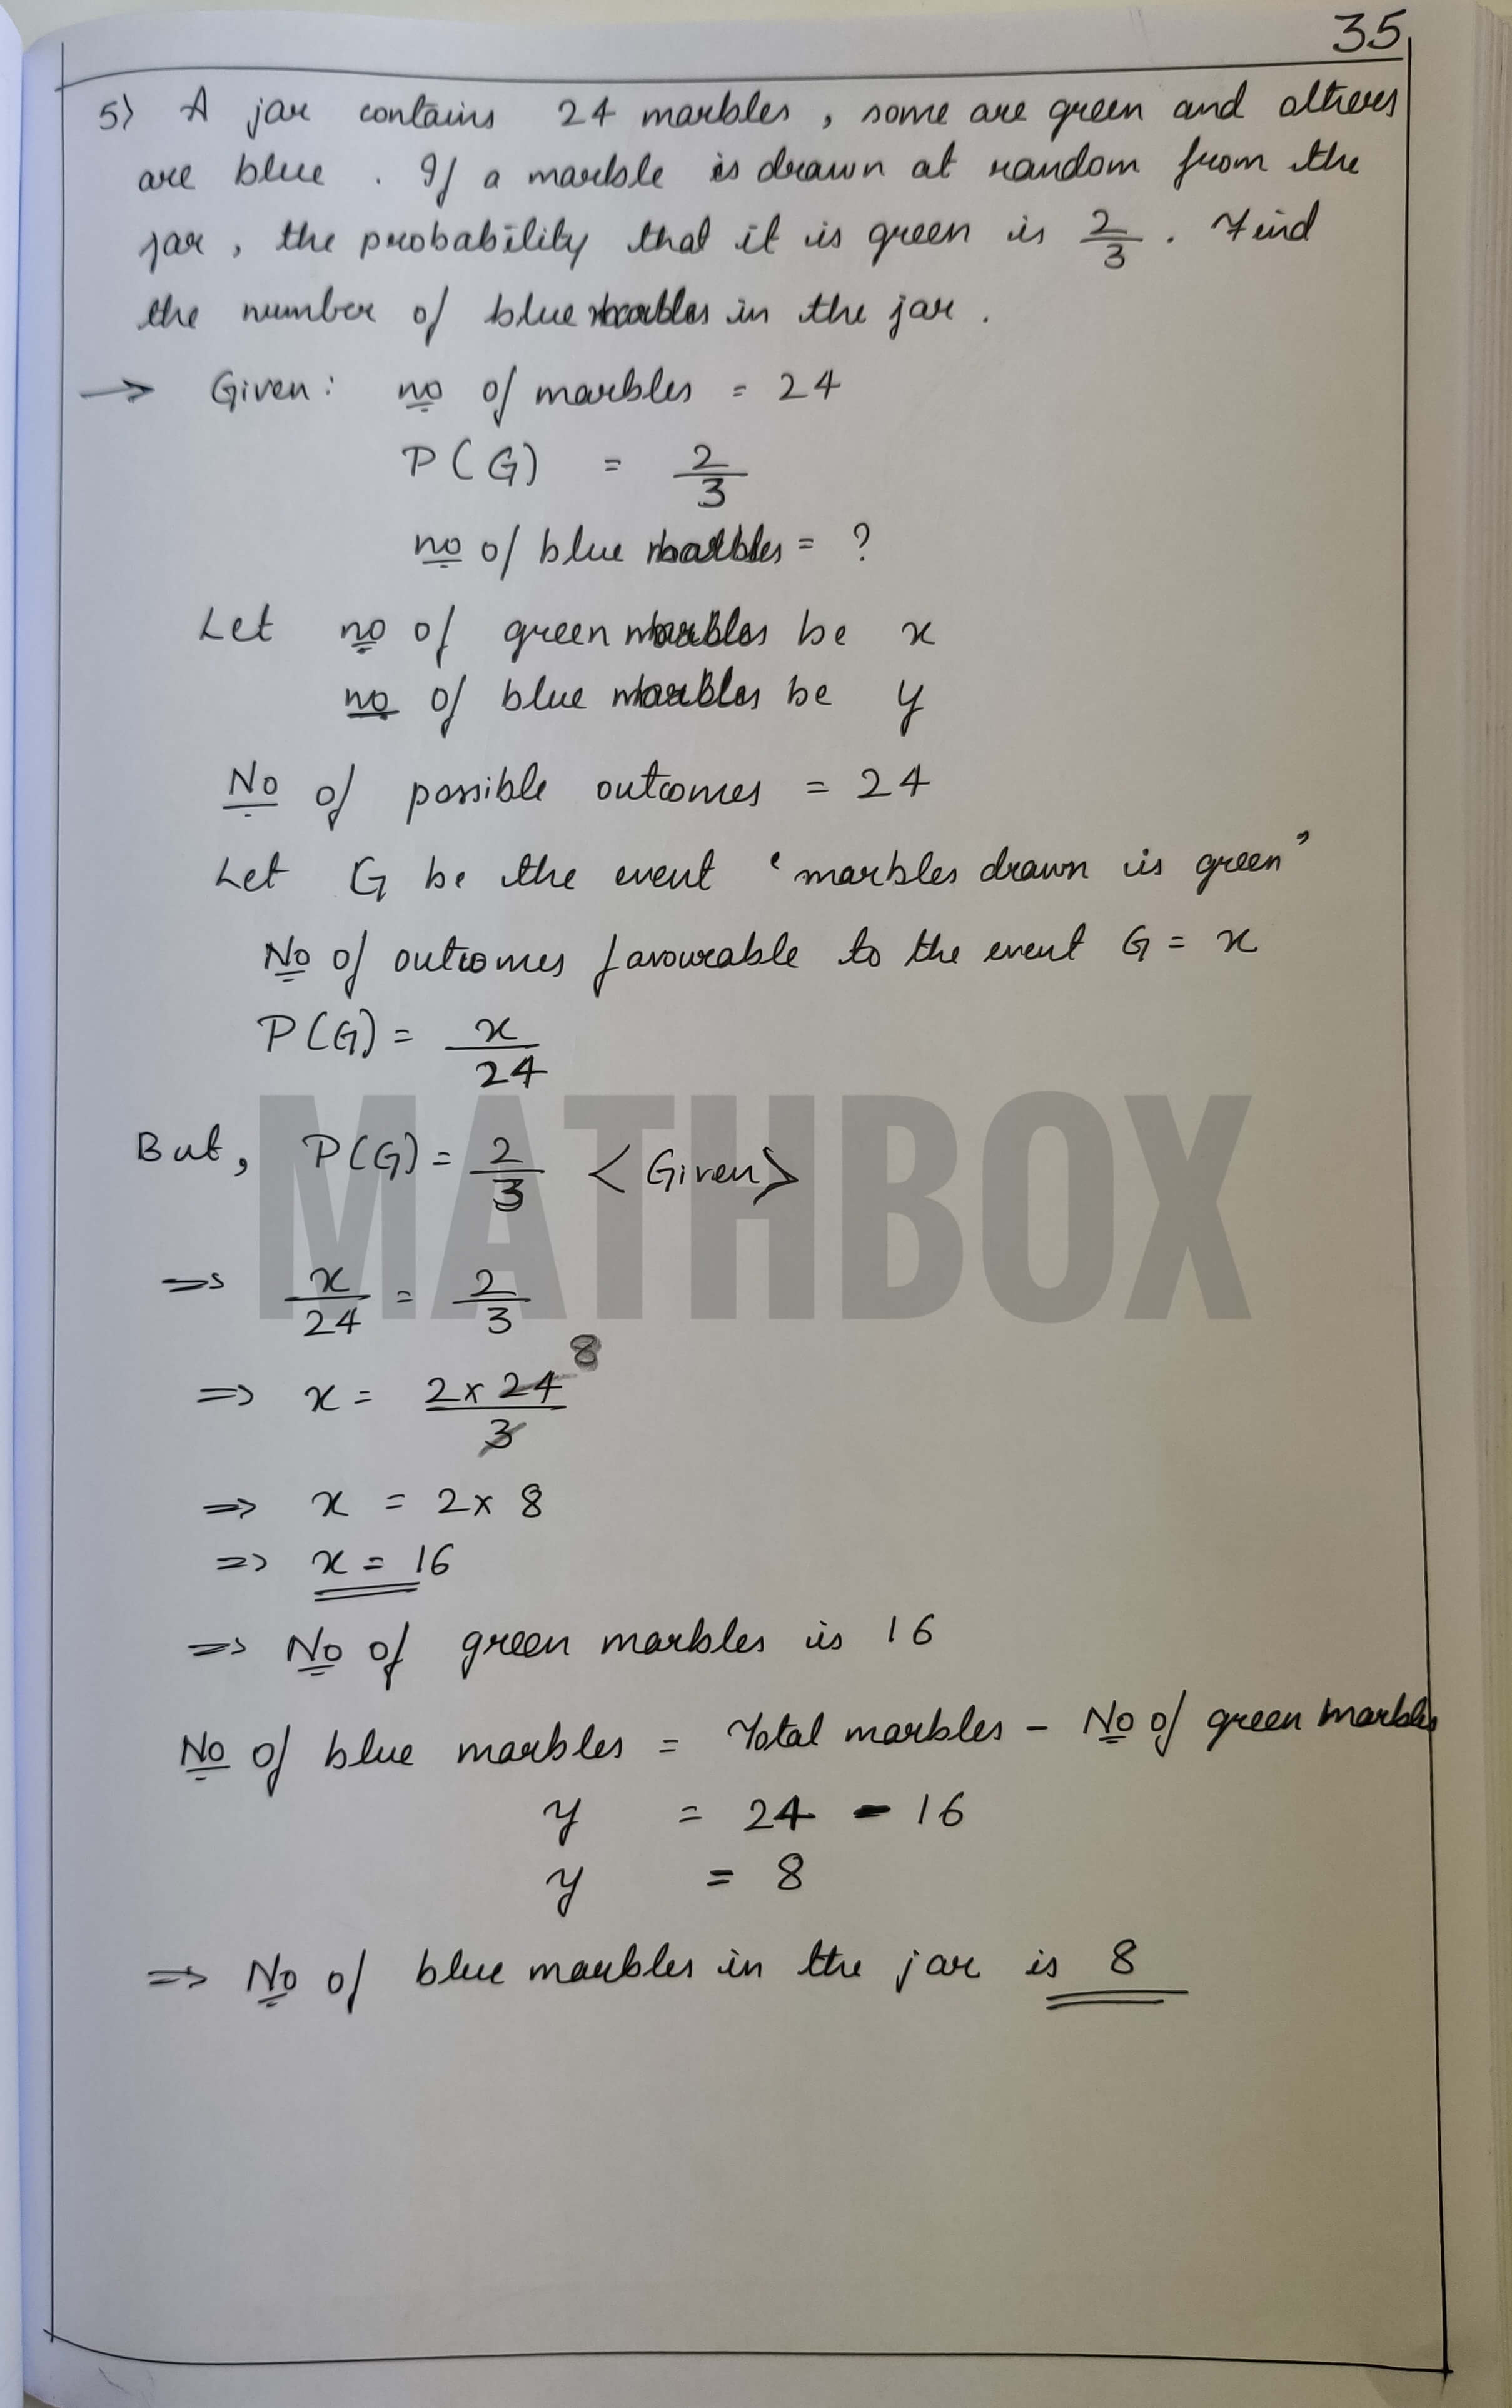 35
5) A jar contains 24 marbles, some are green and others
are blue. If a marble is drawn at random from the
jar, the probability that it is green is 2/3. Find
the number of blue marbles in the jar.
→ Given: no of marbles = 24
P(G) = 2/3
no of blue marbles = ?
Let no of green marbles be x
no of blue marbles be y
No of possible outcomes = 24
Let G be the event ‘marbles drawn is green’
No of outcomes favourable to the event G = x
P(G) = x/24
MATHBOX
But, P(G) = 2/3 <Given>
⇒ x/24 = 2/3
⇒ x = 2 x 24 8/3
⇒ x = 2 x 8
⇒ x = 16
⇒ No of green marbles is 16
No of blue marbles = Total marbles - No of green marbles
y = 24 - 16
y = 8
⇒ No of blue marbles in the jar is 8